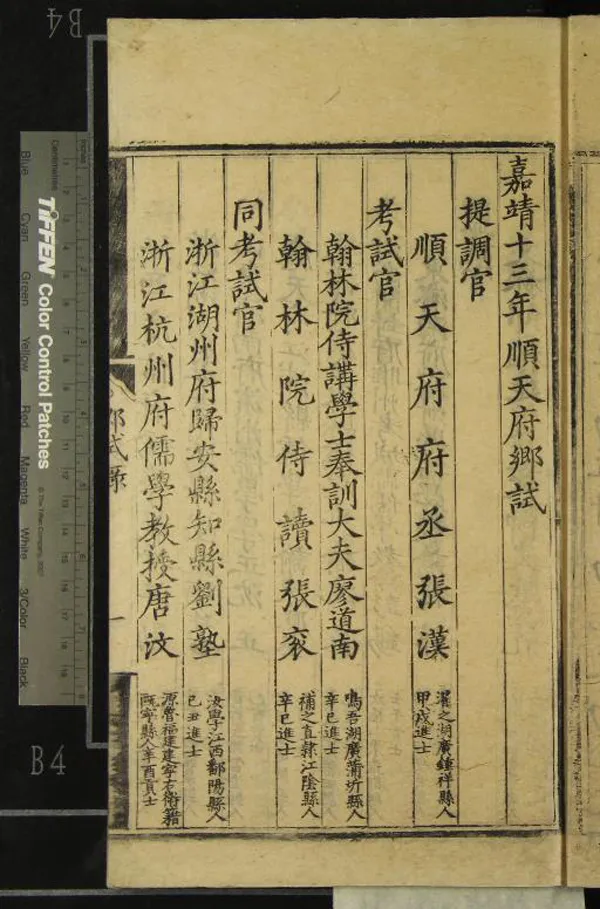 嘉靖十三年順天府鄉試
提調官
順天府府丞張漢
濯之湖廣鍾祥縣人
甲戌進士
考試官
翰林院侍講學士奉訓大夫廖道南
鳴吾湖廣蒲圻縣人
辛巳進士
翰林院侍讀張袞
補之直隸江陰縣人
辛巳進士
同考試官
浙江湖州府歸安縣知縣劉塾
汝學江西鄱陽縣人
己丑進士
浙江杭州府儒學教授唐汶
源魯福建建寧右衛籍
甌寧縣人辛酉貢士
鄉試錄
一
B4
B4
Centimetres
Inches
TIFFEN Color Control Patches
© The Tiffen Company, 2007
Blue
Cyan
Green
Yellow
Red
Magenta
White
3/Color
Black